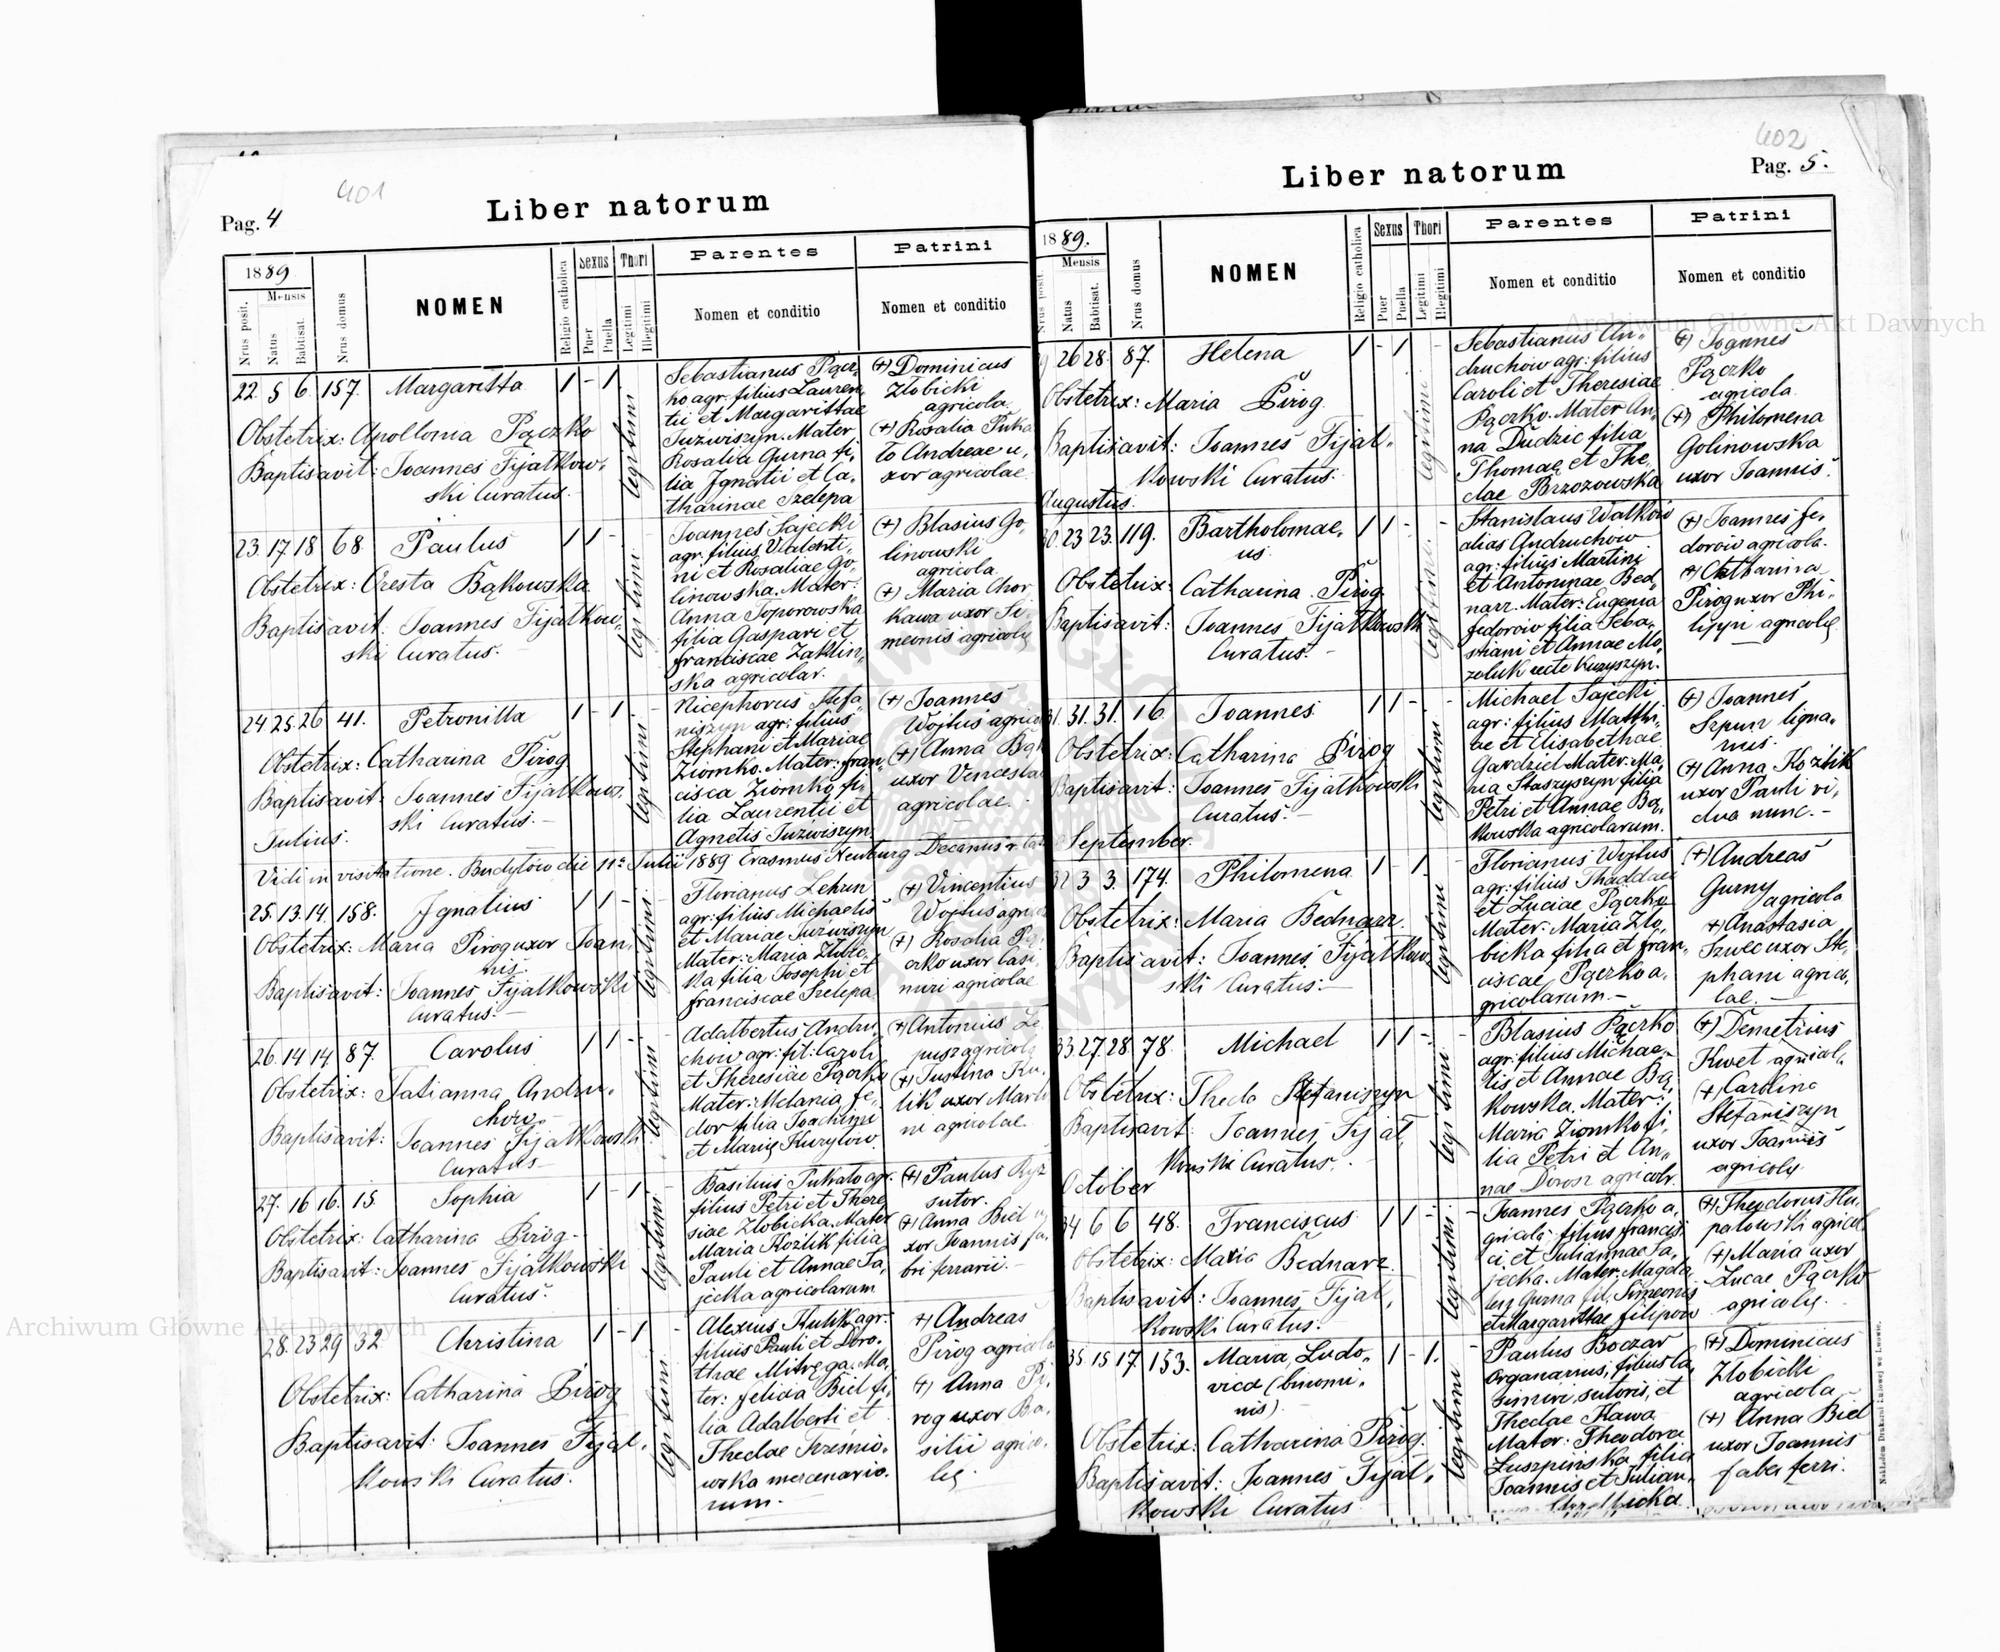 401
Pag. 4
Liber natorum
1889.
Mensis
Nrus posit.
Natus
Babtisat.
Nrus domus
NOMEN
Religio catholica
Sexus
Puer
Puella
Thori
Legitimi
Illegitimi
Parentes
Nomen et conditio
Patrini
Nomen et conditio
22. 5 6. 157. Margaritta 1 - 1.
Obstetrix: Apollonia Pączko
Baptisavit: Joannes Fijałkow-
ski Curatus.
legitimi
Sebastianus Pącz-
ko agr: filius Lauren-
tii et Margarittae
Juzwiszyn. Mater
Rosalia Gurna fi-
lia Ignatii et Ca-
tharinae Szelepa
(+) Dominicus
Złobicki
agricola
(+) Rosalia
to Andreae u-
xor agricolae
23. 17. 18 68. Paulus 1 1 -
Obstetrix: Oresta Bąkowska
Baptisavit: Joannes Fijałkow-
ski Curatus.
legitimi
Joannes Sajecki
agr: filius Valenti-
ni et Rosaliae Go-
linowska. Mater:
Anna Toporowska
filia Gaspari et
Franciscae Zaklin-
ska agricolar.
(+) Blasius Go-
linowski
agricola
(+) Maria Chor-
kawa uxor Si-
meonis agricolę
24 25. 26 41. Petronilla 1 - 1.
Obstetrix: Catharina Pirog
Baptisavit: Joannes Fijałkow-
ski Curatus.
legitimi
Nicephorus Stefa-
niszyn agr: filius
Stephani et Mariae
Ziomko. Mater: Fran-
cisca Ziomko fi-
lia Laurentii et
Agnetis Juzwiszyn.
(+) Joannes
Wojtus
(+) Anna
uxor
agricolae.
Julius.
Vidi in visitatione. Budyłow die 11a Julii 1889 Erasmus Neuburg Decanus
25. 13. 14. 158. Ignatius 1 1 -
Obstetrix: Maria Pirog uxor Joan-
nis.
Baptisavit: Joannes Fijałkowski
Curatus.
legitimi
Florianus Lehun
agr: filius Michaelis
et Mariae Juzwiszyn
Mater: Maria Złobic-
ka filia Josephi et
Franciscae Szelepa
(+) Vincentius
Wojtus
(+) Rosalia
czko uxor Casi-
miri agricolae
26. 14 14 87. Carolus 1 1 -
Obstetrix: Tatianna Andru-
chow
Baptisavit: Joannes Fijałkowski
Curatus
legitimi
Adalbertus Andru-
chow agr: fil: Caroli
et Theresiae Pączko
Mater: Melania Fe-
dor filia Joachimi
et Marię Kuryłow.
(+) Antonius
agricola
(+) Justina Ku-
lik uxor
ni agricolae
27. 16 16. 15. Sophia 1 - 1 -
Obstetrix: Catharina Pirog -
Baptisavit: Joannes Fijałkowski
Curatus.
legitimi
Basilius agr.
filius Petri et There-
siae Złobicka. Mater
Maria Kożlik filia
Pauli et Annae Sa-
jecka agricolarum
(+) Paulus
sutor.
(+) Anna Biel u-
xor Joannis fa-
bri ferrarii. -
28. 23 29 32 Christina 1 - 1
Obstetrix: Catharina Pirog
Baptisavit: Joannes Fijał-
kowski Curatus.
legitimi
Alexius Hulik agr.
filius Pauli et Doro-
theae Mitręga. Ma-
ter: Felicia Biel fi-
lia Adalberti et
Theclae Trześnio-
wska mercenario-
rum.
+) Andreas
Pirog agricola
+) Anna Pi-
rog uxor Ba-
silii agrico-
lę.
402
Liber natorum
Pag. 5.
1889.
Mensis
Nrus posit.
Natus
Babtisat.
Nrus domus
NOMEN
Religio catholica
Sexus
Puer
Puella
Thori
Legitimi
Illegitimi
Parentes
Nomen et conditio
Patrini
Nomen et conditio
26 28. 87. Helena 1 - 1
Obstetrix: Maria Pirog
Baptisavit: Joannes Fijał-
kowski Curatus.
legitimi
Sebastianus An-
druchow agr: filius
Caroli et Theresiae
Pączko. Mater An-
na Dudzic filia
Thomae et The-
clae Brzozowska
(+) Joannes
Pączko
agricola
(+) Philomena
Golinowska
uxor Joannis.
Augustus.
30. 23 23. 119. Bartholomae-
us 1 1 -
Obstetrix: Catharina Pirog
Baptisavit: Joannes Fijałkowski
Curatus.
legitimi
Stanislaus Walkow
alias Andruchow
agr: filius Martini
et Antoninae Bed-
narz. Mater: Eugenia
Fedorow filia Seba-
stiani et Annae Mo-
zoluk recte Kuzyszyn.
(+) Joannes Fe-
dorow agricola.
(+) Catharina
Pirog uxor Phi-
lippi agricolę
31. 31. 31. 16. Joannes 1 1 -
Obstetrix: Catharina Pirog
Baptisavit: Joannes Fijałkowski
Curatus. -
legitimi
Michael Sajecki
agr: filius Matthi-
ae et Elisabethae
Gardziel Mater: Ma-
ria Staszyszyn filia
Petri et Annae Bą-
kowska agricolarum.
(+) Joannes
Szpun ligna-
rius.
(+) Anna Kożlik
uxor Pauli vi-
dua nunc. -
September.
32 3 3. 174. Philomena 1 - 1
Obstetrix: Maria Bednarz
Baptisavit: Joannes Fijałkow-
ski Curatus. -
legitimi
Florianus Wojtus
agr: filius Thaddaei
et Luciae Pączko
Mater: Maria Zło-
bicka filia et Fran-
ciscae Pączko a-
gricolarum. -
(+) Andreas
Gurny
agricola
+) Anastasia
Szwec uxor Ste-
phani agrico-
lae. -
33. 27. 28. 78. Michael 1 1 -
Obstetrix: Thecla Stefaniszyn
Baptisavit: Joannes Fijał-
kowski Curatus.
legitimi
Blasius Pączko
agr: filius Michae-
lis et Annae Bą-
kowska. Mater:
Maria Ziomko fi-
lia Petri et An-
nae Dorosz agricolr.
(+) Demetrius
Kwet agricola
(+) Carolina
Stefaniszyn
uxor Joannis
agricolę
October
34 6 6 48. Franciscus 1 1 -
Obstetrix: Maria Bednarz
Baptisavit: Joannes Fijał-
kowski Curatus.
legitimi
Joannes Pączko a-
gricola: filius Francis-
ci et Juliannae Sa-
jecka. Mater: Magda-
len Gurna fil: Simeonis
et Margarittae Filipow
(+) Theodorus
agricol.
(+) Maria uxor
Lucae Pączko
agricolę.
35. 15 17. 153. Maria Ludo-
vica (binomi-
nis) 1 - 1.
Obstetrix: Catharina Pirog.
Baptisavit: Joannes Fijał-
kowski Curatus
legitimi
Paulus Boczar
organarius, filius Ca-
simiri, sutoris, et
Theclae Kawa
Mater: Theodora
Łuszpinska filia
Joannis et Julian-
(+) Dominicus
Złobicki
agricola
(+) Anna Biel
uxor Joannis
faber ferri.
Nakładem Drukarni Ludowej we Lwowie.
Archiwum Główne Akt Dawnych
Archiwum Główne Akt Dawnych